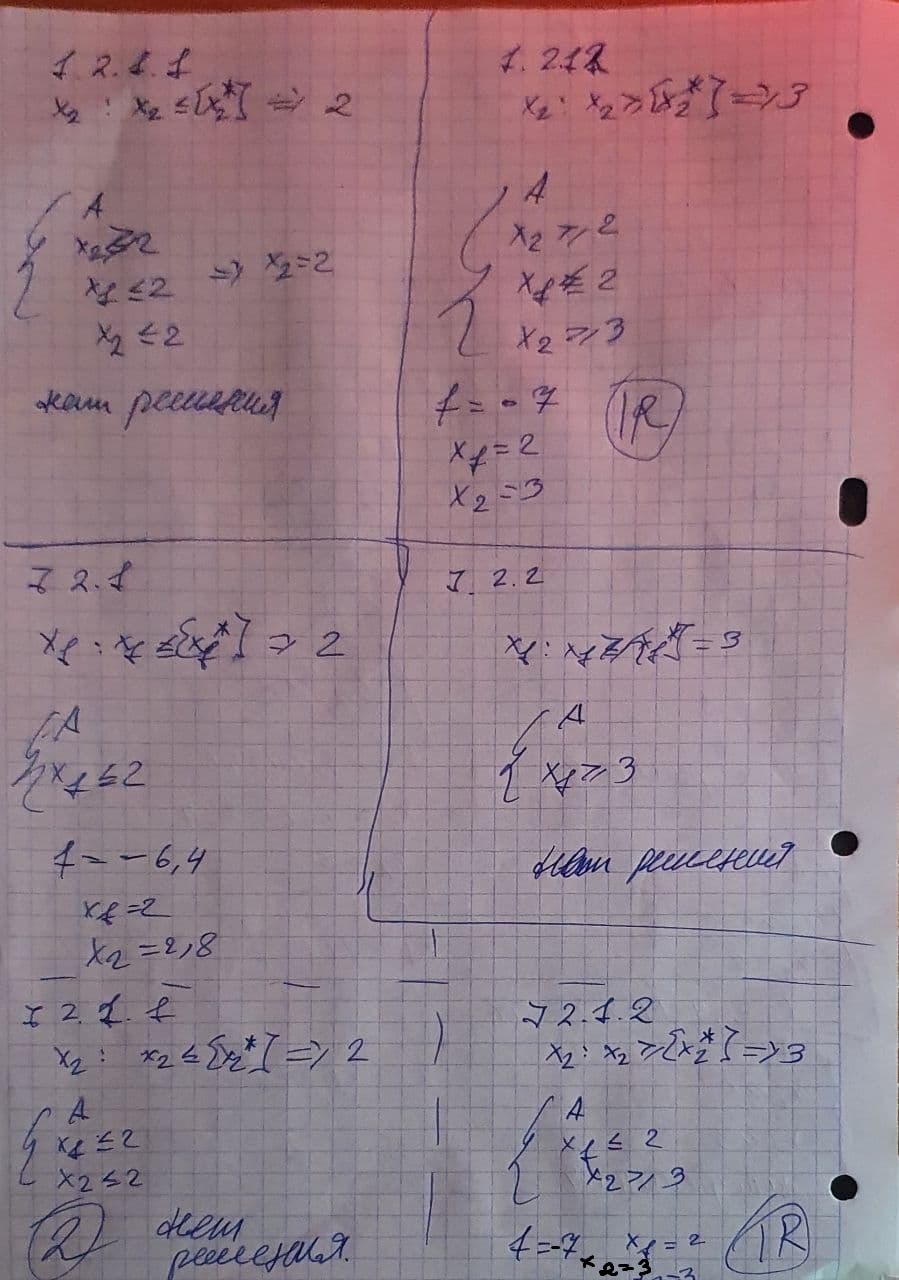 1.2.1.1
x₂ : x₂ ≤ [x₂*] => 2
{ A
x₂ ≥ 2
x₁ ≤ 2 => x₂ = 2
x₂ ≤ 2
нет решения
1.2.1.2
x₂ : x₂ ≥ [x₂*] => 3
{ A
x₂ ≥ 2
x₁ ≤ 2
x₂ ≥ 3
f = -7 IR
x₁ = 2
x₂ = 3
I 2.1
x₁ : x₁ ≤ [x₁*] => 2
{ A
x₁ ≤ 2
f = -6,4
x₁ = 2
x₂ = 2,8
I. 2.2
x₁ : x₁ ≥ [x₁*] = 3
{ A
x₁ ≥ 3
нет решения
I 2.1.1
x₂ : x₂ ≤ [x₂*] => 2
{ A
x₁ ≤ 2
x₂ ≤ 2
2 нет
решения.
I 2.1.2
x₂ : x₂ ≥ [x₂*] => 3
{ A
x₁ ≤ 2
x₂ ≥ 3
f = -7 x₁ = 2 IR
x₂ = 3